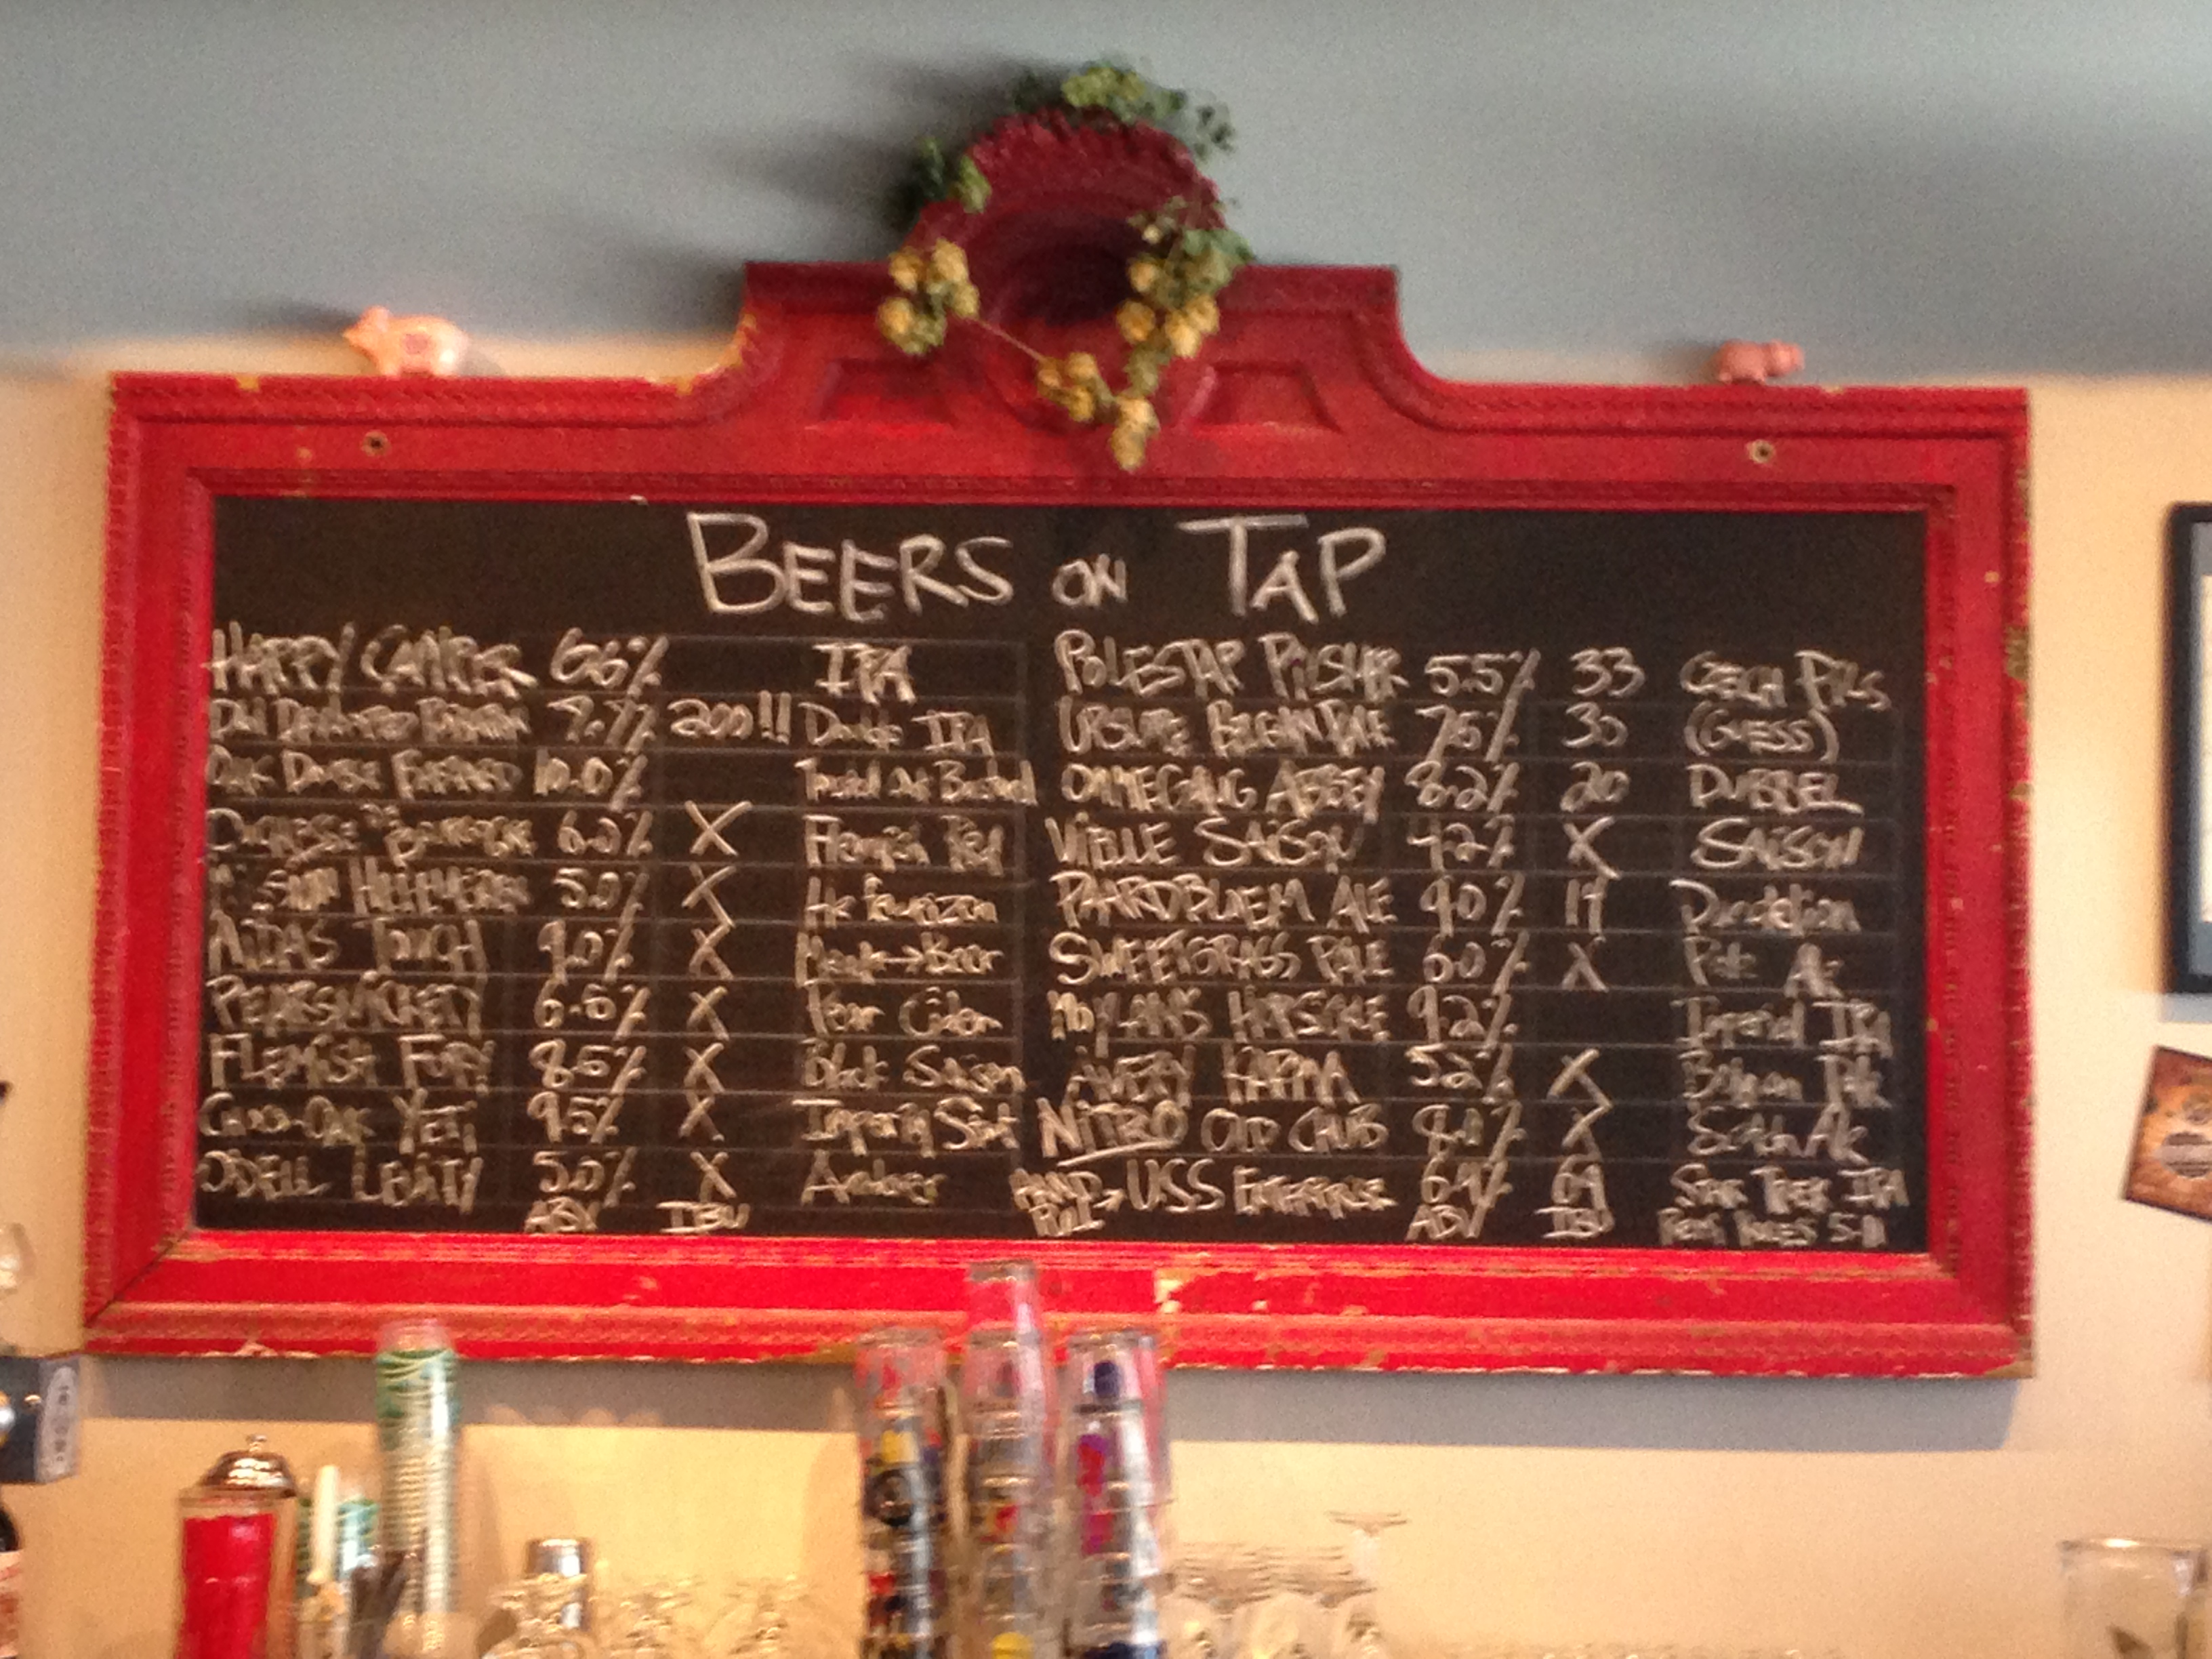 BEERS ON TAP
HAPPY CAMPER 6.6% IPA
200!! Double IPA
10.0%
DUCHESSE DE BOURGOGNE 6.2% X Flemish Red
HEFEWEIZEN 5.0% X Hefeweizen
MIDAS TOUCH 9.0% X Mead→Beer
PEARSNICKETY 6.6% X Pear Cider
FLEMISH FURY 8.5% X Black Saison
YETI 9.5% X Stout
ODELL LEVITY 5.0% X Amber
ABV IBU
POLESTAR PILSNER 5.5% 33 CZECH PILS
BELGIAN PALE 30 (GUESS)
OMMEGANG ABBEY 8.2% 20 DUBBEL
VIEILLE SAISON 4.2% X SAISON
PAARDEBLOEM ALE 9.0% 19 Dandelion
SWEETGRASS PALE 6.0% X Pale Ale
MOYLANS HOPSICLE 9.2% Imperial IPA
AVERY KARMA 5.2% X Belgian Pale
NITRO OLD CHUB 8.0% X Scotch Ale
HAND PULL → USS ENTERPRISE 6.9% 69 STAR TREK IPA
ABV IBU